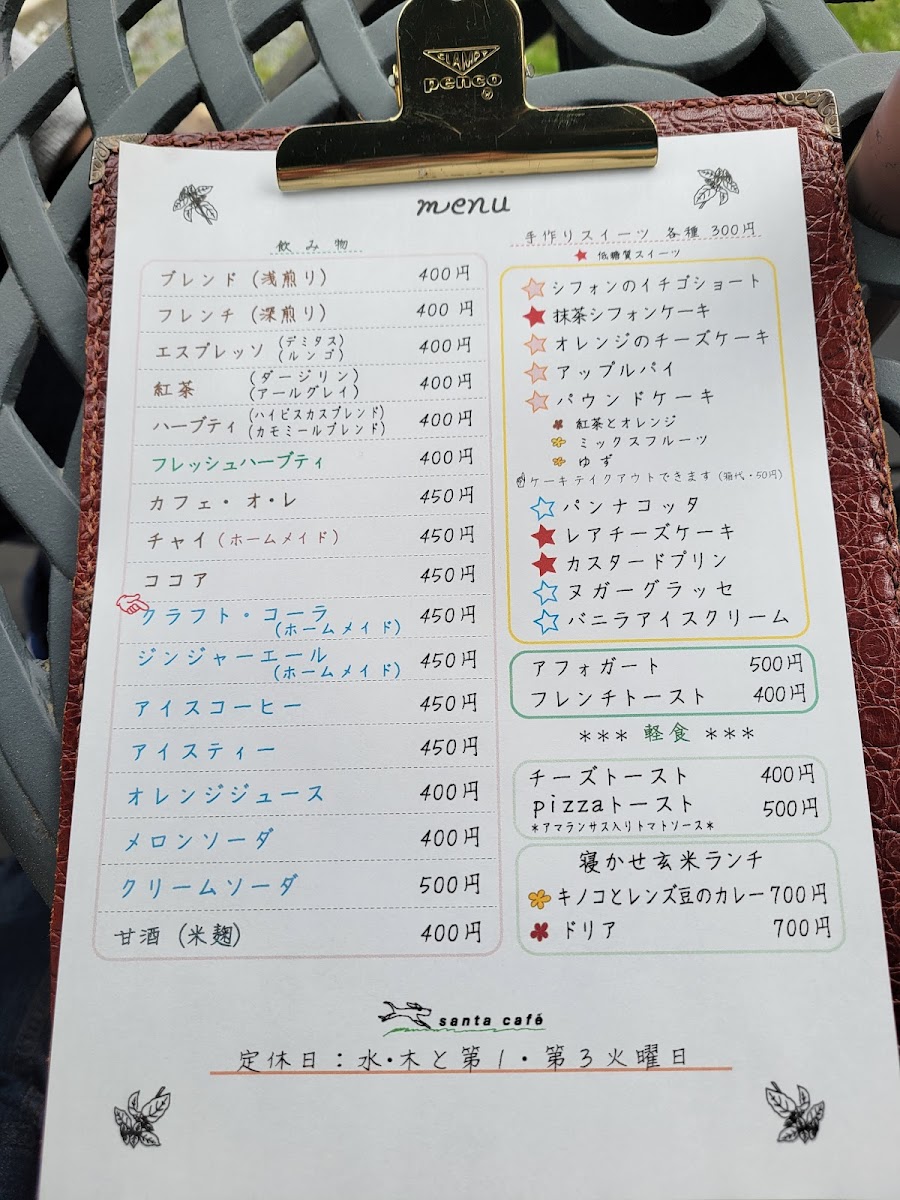 CLAMPY
penco
menu
飲み物
ブレンド (浅煎り) 400円
フレンチ (深煎り) 400円
エスプレッソ (デミタス) (ルンゴ) 400円
紅茶 (ダージリン) (アールグレイ) 400円
ハーブティ (ハイビスカスブレンド) (カモミールブレンド) 400円
フレッシュハーブティ 400円
カフェ・オ・レ 450円
チャイ (ホームメイド) 450円
ココア 450円
クラフト・コーラ (ホームメイド) 450円
ジンジャーエール (ホームメイド) 450円
アイスコーヒー 450円
アイスティー 450円
オレンジジュース 400円
メロンソーダ 400円
クリームソーダ 500円
甘酒 (米麹) 400円
手作りスイーツ 各種 300円
★ 低糖質スイーツ
☆ シフォンのイチゴショート
★ 抹茶シフォンケーキ
☆ オレンジのチーズケーキ
☆ アップルパイ
☆ パウンドケーキ
紅茶とオレンジ
ミックスフルーツ
ゆず
ケーキテイクアウトできます (箱代・50円)
☆ パンナコッタ
★ レアチーズケーキ
★ カスタードプリン
☆ ヌガーグラッセ
☆ バニラアイスクリーム
アフォガート 500円
フレンチトースト 400円
*** 軽食 ***
チーズトースト 400円
pizzaトースト 500円
*アマランサス入りトマトソース*
寝かせ玄米ランチ
キノコとレンズ豆のカレー 700円
ドリア 700円
santa café
定休日:水・木と第1・第3火曜日